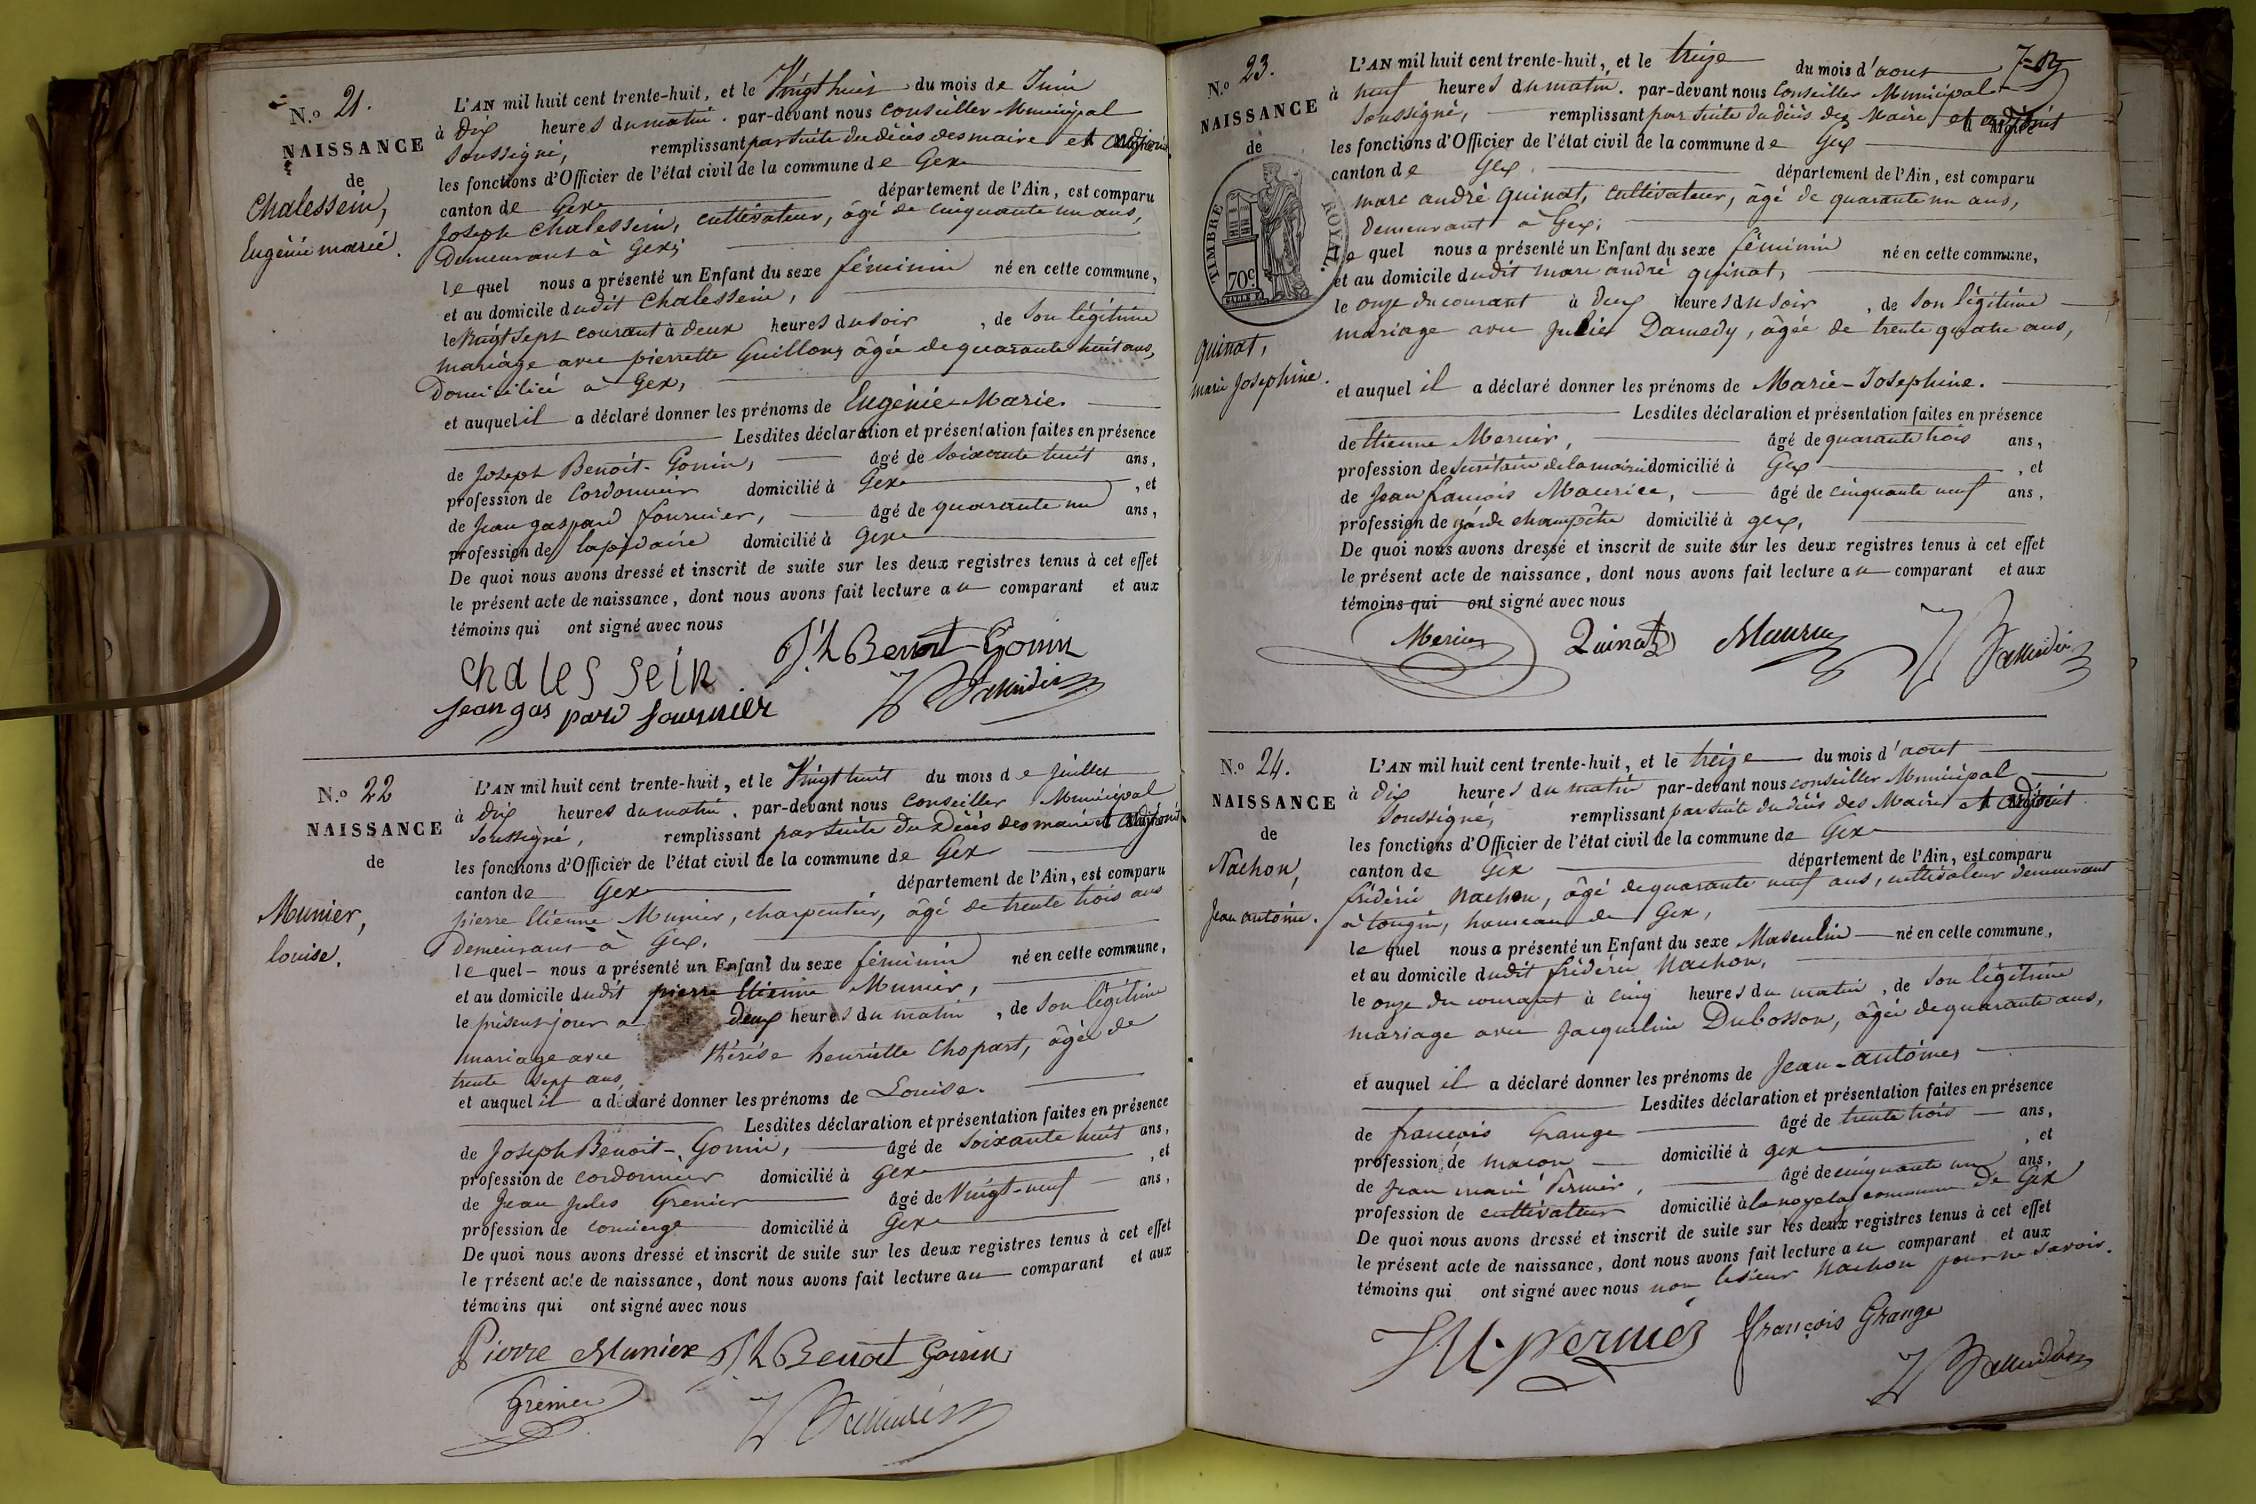 N.o 21.
NAISSANCE
de
Chalessein,
Eugénie marie.
L'AN mil huit cent trente-huit, et le Vingt huit du mois de Juin
à dix heures du matin. par-devant nous conseiller Municipal
soussigné, remplissant par suite du décès des maire et adjoint
les fonctions d'Officier de l'état civil de la commune de Gex
canton de Gex département de l'Ain, est comparu
Joseph Chalessein, cultivateur, âgé de cinquante un ans,
Demeurant à Gex;
lequel nous a présenté un Enfant du sexe féminin né en cette commune,
et au domicile dudit Chalessein,
le Vingt sept courant à deux heures du soir, de son légitime
mariage avec pierrette Guillon, âgée de quarante huit ans,
Domiciliée à Gex,
et auquel il a déclaré donner les prénoms de Eugénie-Marie.
Lesdites déclaration et présentation faites en présence
de Joseph Benoit-Gonin, âgé de soixante huit ans,
profession de Cordonnier domicilié à Gex, et
de Jean gaspard fournier, âgé de quarante un ans,
profession de lapidaire domicilié à Gex
De quoi nous avons dressé et inscrit de suite sur les deux registres tenus à cet effet
le présent acte de naissance, dont nous avons fait lecture au comparant et aux
témoins qui ont signé avec nous
chalessein J.h Benoit-Gonin
jean gaspard fournier
N.o 22
NAISSANCE
de
Munier,
Louise.
L'AN mil huit cent trente-huit, et le Vingt huit du mois de juillet
à dix heures du matin. par-devant nous conseiller Municipal
soussigné, remplissant par suite du Décès des maire et adjoint
les fonctions d'Officier de l'état civil de la commune de Gex
canton de Gex département de l'Ain, est comparu
pierre Etienne Munier, charpentier, âgé de trente trois ans
demeurant à Gex.
lequel nous a présenté un Enfant du sexe féminin né en cette commune,
et au domicile dudit pierre Etienne Munier,
le présent jour à deux heures du matin, de son légitime
mariage avec thérèse henriette Chopart, âgée de
trente sept ans,
et auquel il a déclaré donner les prénoms de Louise.
Lesdites déclaration et présentation faites en présence
de Joseph Benoit-Gonin, âgé de soixante huit ans,
profession de cordonnier domicilié à gex, et
de Jean Jules Grenier âgé de Vingt-neuf ans,
profession de concierge domicilié à Gex
De quoi nous avons dressé et inscrit de suite sur les deux registres tenus à cet effet
le présent acte de naissance, dont nous avons fait lecture au comparant et aux
témoins qui ont signé avec nous
Pierre Munier J.h Benoit Gonin
Grenier
N.o 23.
NAISSANCE
de
TIMBRE ROYAL.
70c
quinat,
marie Josephine.
L'AN mil huit cent trente-huit, et le treize du mois d'aout
à neuf heures du matin. par-devant nous conseiller Municipal
soussigné, remplissant par suite du décès des Maire et adjoint
les fonctions d'Officier de l'état civil de la commune de Gex
canton de Gex département de l'Ain, est comparu
marc andré quinat, cultivateur, âgé de quarante un ans,
demeurant à Gex;
lequel nous a présenté un Enfant du sexe féminin né en cette commune,
et au domicile dudit marc andré quinat,
le onze du courant à deux heures du soir, de son légitime
mariage avec Julie Damedy, âgée de trente quatre ans,
et auquel il a déclaré donner les prénoms de Marie-Josephine.
Lesdites déclaration et présentation faites en présence
de Etienne Mernier, âgé de quarante trois ans,
profession de secrétaire de la mairie domicilié à Gex, et
de Jean françois Maurice, âgé de cinquante neuf ans,
profession de garde champêtre domicilié à gex,
De quoi nous avons dressé et inscrit de suite sur les deux registres tenus à cet effet
le présent acte de naissance, dont nous avons fait lecture au comparant et aux
témoins qui ont signé avec nous
Quinat Maurice
N.o 24.
NAISSANCE
de
Nachon,
Jean antoine.
L'AN mil huit cent trente-huit, et le treize du mois d'aout
à dix heures du matin par-devant nous conseiller Municipal
soussigné, remplissant par suite du décès des Maire et adjoint
les fonctions d'Officier de l'état civil de la commune de Gex
canton de Gex département de l'Ain, est comparu
frédéric Nachon, âgé de quarante neuf ans, cultivateur demeurant
à tougin, hameau de Gex,
lequel nous a présenté un Enfant du sexe Masculin né en cette commune,
et au domicile dudit frédéric Nachon,
le onze du courant à cinq heures du matin, de son légitime
mariage avec Jacqueline Dubosson, âgée de quarante ans,
et auquel il a déclaré donner les prénoms de Jean-antoine,
Lesdites déclaration et présentation faites en présence
de françois Grange âgé de trente trois ans,
profession de maçon domicilié à gex, et
de Jean marie Pernier, âgé de cinquante un ans,
profession de cultivateur domicilié à commune de Gex
De quoi nous avons dressé et inscrit de suite sur les deux registres tenus à cet effet
le présent acte de naissance, dont nous avons fait lecture au comparant et aux
témoins qui ont signé avec nous non le sieur Nachon pour ne savoir.
françois Grange